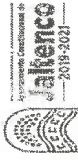 Ayuntamiento Constitucional de
Jaltenco
2019-2021